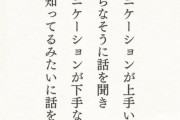 ニケーションが上手い
らなそうに話を聞き
ニケーションが下手な
知ってるみたいに話を